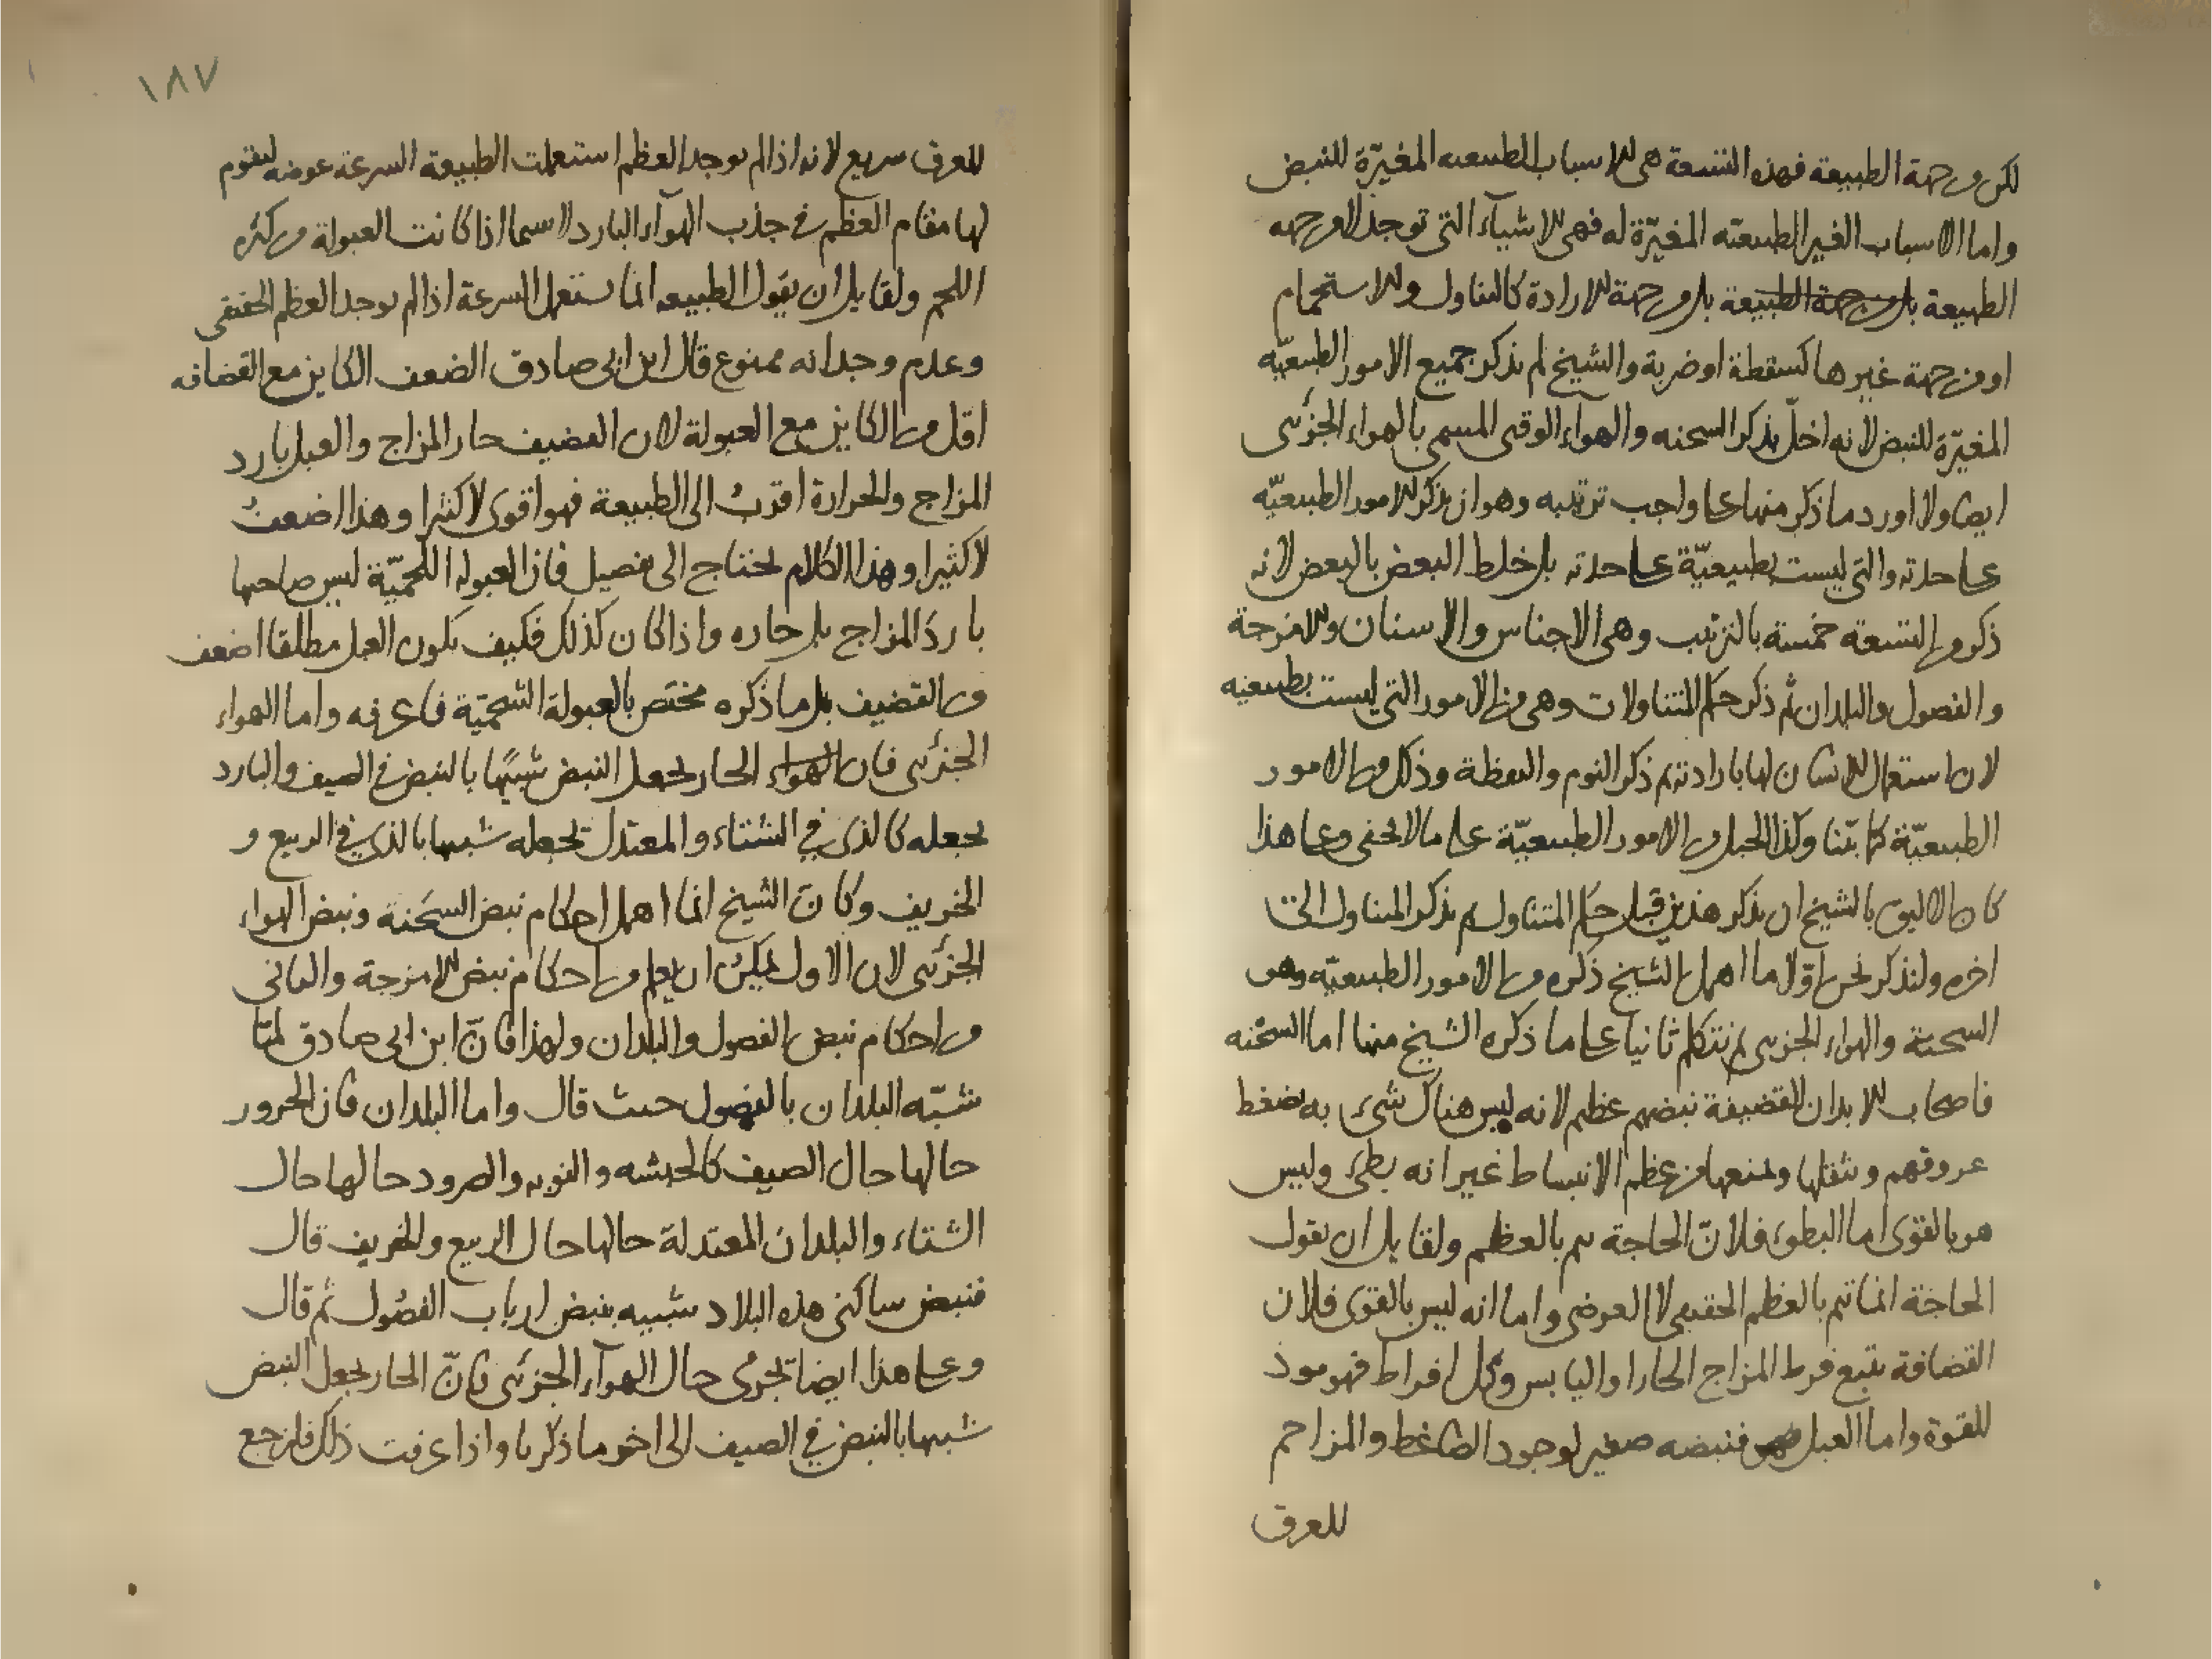 لكن من جهة الطبيعة فهذه التسعة هي الاسباب الطبيعية المغيّرة للنبض
واما الاسباب الغير الطبيعيّة المغيّرة له فهى الاشيآء التى توجد لا من جهة
الطبيعة بل من جهة الطبيعة بل من جهة الارادة كالتناول والاستحمام
او من جهة غيرها كسقطة او ضربة والشيخ لم يذكر جميع الامور الطبيعيّة
المغيّرة للنبض لانه اخلّ بذكر السحنه والهواء الوقتى المسمى بالهواء الجزئى
ايضا ولا اورد ما ذكر منها على واجب ترتيبه وهو ان يذكر الامور الطبيعيّة
على حدته والتى ليست بطبيعيّة على حدته بل خلط البعض بالبعض لانه
ذكر من التسعة خمسة بالترتيب وهى الاجناس والاسنان والامزجة
والفصول والبلدان ثم ذكر حكم المتناولات وهى من الامور التى ليست بطبيعيه
لان استعمال الانسان لها بارادته ثم ذكر النوم واليقظة وذلك من الامور
الطبيعيّة كما بيّنا وكذا الحبل من الامور الطبيعيّة على ما لا يخفى وعلى هذا
كان الاليق بالشيخ ان يذكر هذين قبل حكم المتناول ثم يذكر المتناول الى
اخره ولنذكر نحن اوّلا ما اهمل الشيخ ذكره من الامور الطبيعيّه وهى
السحنة والهواء الجزئى ثم نتكلم ثانيا على ما ذكره الشيخ منها اما السحنه
فاصحاب الابدان القضيفة نبضهم عظيم لانه ليس هناك شىء به يضغط
عروقهم ويثقلها ويمنعها من عظم الانبساط غير انه بطىء وليس
هو بالقوى اما البطوء فلانّ الحاجة تتم بالعظم ولقايل ان يقول
الحاجة انما تتم بالعظم الحقيقى لا العرضى واما انه ليس بالقوى فلان
القضافة يتبع فرط المزاج الحار او اليابس وكل افراط فهو موذ
للقوة واما العبل فهو فنبضه صغير لوجود الضاغط والمزاحم
للعرق
١٨٧
للعرق سريع لانه اذا لم يوجد العظم استعملت الطبيعة السرعة عوضه ليقوم
لها مقام العظم فى جذب الهوآء البارد لا سيما اذا كانت العبولة من كثره
اللحم ولقايل ان يقول الطبيعه انما يستعمل السرعة اذا لم يوجد العظم الحقيقى
وعدم وجدانه ممنوع قال ابن ابى صادق الضعف الكاين مع القضافه
اقل من الكاين مع العبولة لان القضيف حار المزاج والعبل بارد
المزاج والحرارة اقرب الى الطبيعة فهو اقوى لا كثيرا وهذا اضعف
لا كثيرا وهذا الكلام يحتاج الى تفصيل فان العبوله اللحميّة ليس صاحبها
بارد المزاج بل حاره واذا كان كذلك فكيف يكون العبل مطلقا اضعف
من القضيف بل ما ذكره مختص بالعبولة الشحميّة فاعرفه واما الهواء
الجزئى فان الهواء الحار يجعل النبض شبيها بالنبض فى الصيف والبارد
يجعله كالذى فى الشتاء والمعتدل يجعله شبيها بالذى فى الربيع و
الخريف وكان الشيخ انما اهمل احكام نبض السحنة ونبض الهواء
الجزئى لان الاول يمكن ان يعلم من احكام نبض الامزجة والثانى
من احكام نبض الفصول والبلدان ولهذا فانّ ابن ابى صادق لمّا
شبّه البلدان بالفصول حيث قال واما البلدان فان الحرور
حالها حال الصيف كالحبشه والنوبه والصرود حالها حال
الشتاء والبلدان المعتدلة حالها حال الربيع والخريف قال
فنبض ساكنى هذه البلاد شبيه بنبض ارباب الفصول ثم قال
وعلى هذا ايضا تجرى حال الهوآء الجزئى فانّ الحار يجعل النبض
شبيها بالنبض فى الصيف الى اخر ما ذكرنا واذا عرفت ذلك فلنرجع